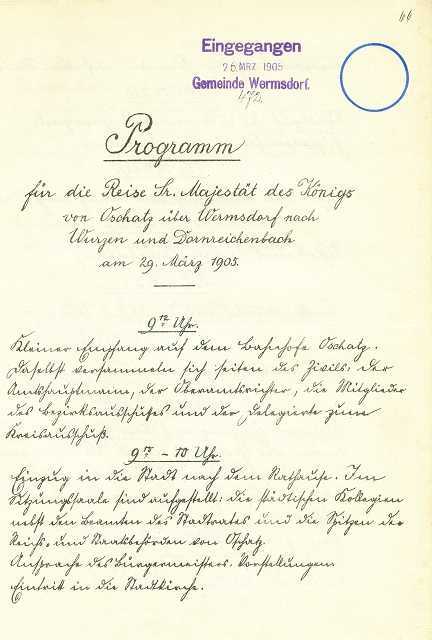 66
Eingegangen
26. MRZ. 1905
Gemeinde Wermsdorf.
472
Programm
für die Reise Sr. Majestät des Königs
von Oschatz über Wermsdorf nach
Wurzen und Dornreichenbach
am 29. März 1905.
9 Uhr.
Kleiner Empfang auf dem Bahnhofe Oschatz.
Daselbst versammeln sich seiten des Zivils: der
Amtshauptmann, der Oberamtsrichter, die Mitglieder
des Bezirksausschußes und der Delegierte zum
Kreisausschuß.
9 - 10 Uhr.
Einzug in die Stadt nach dem Rathause. Im
Sitzungssaale sind aufgestellt: die städtischen Kollegien
nebst den Beamten des Stadtrates und die Spitzen der
Reichs- und Staatsbehörden von Oschatz.
Ansprache des Bürgermeisters. Vorstellungen
Eintritt in die Stadtkirche.